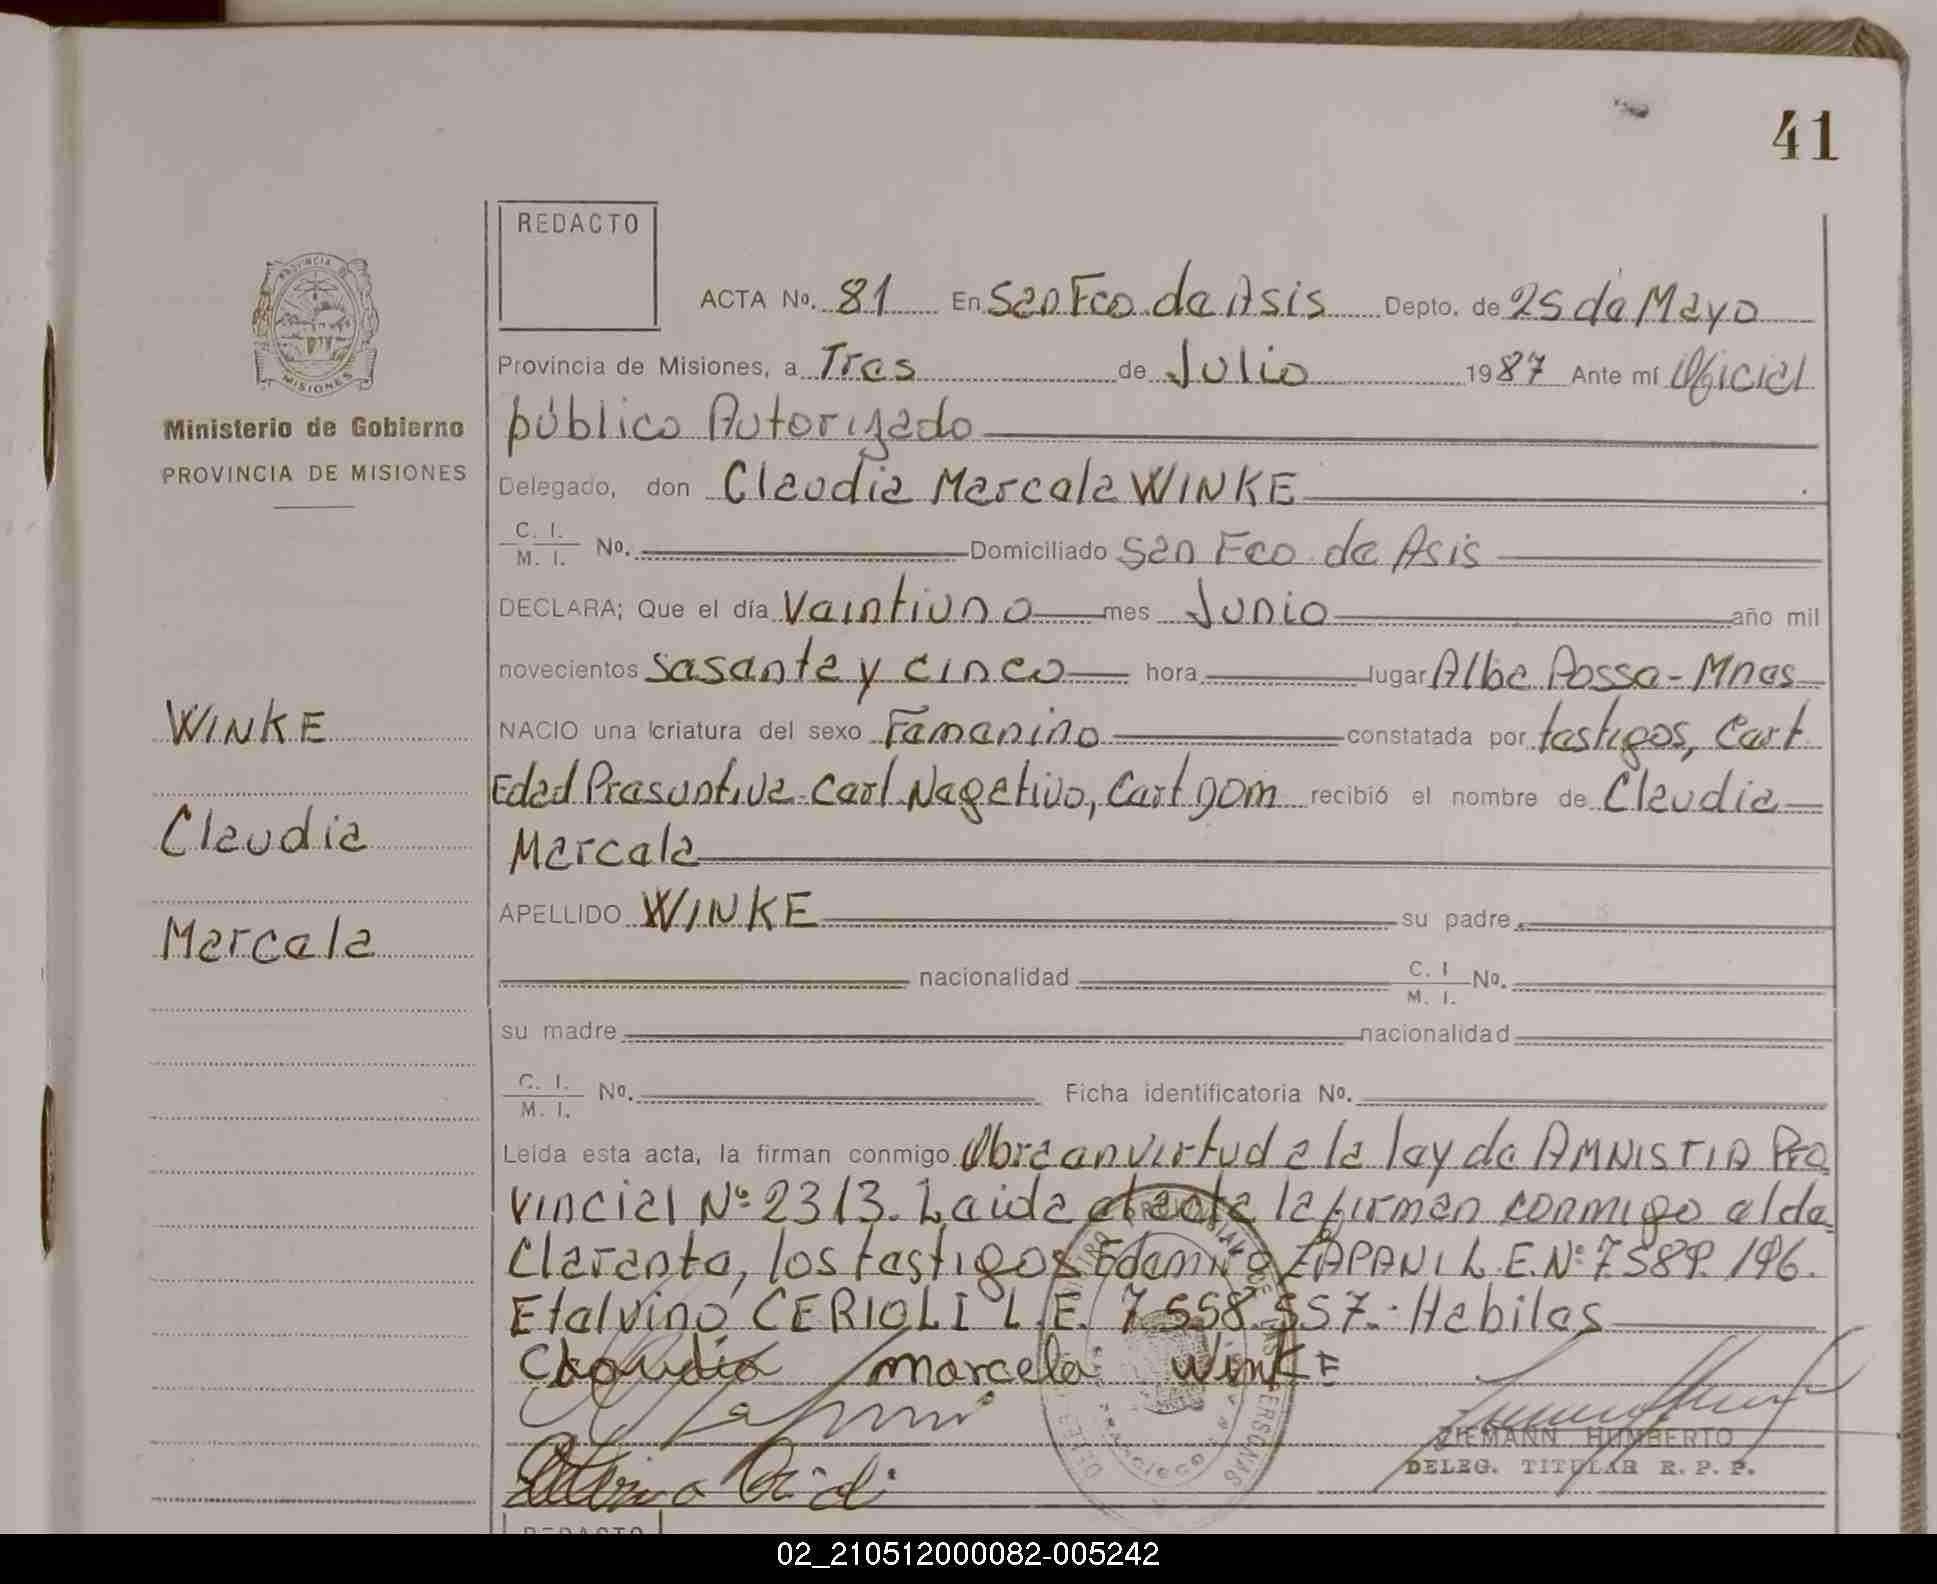 41
REDACTO
ACTA No. 81 En San Fco. de Asis Depto. de 25 de Mayo
Provincia de Misiones, a Tres de Julio 1987 Ante mí Oficial
público Autorizado
Delegado, don Claudia Marcela WINKE
C. I.
M. I. No. Domiciliado San Fco. de Asis
DECLARA; Que el día Veintiuno mes Junio año mil
novecientos sesenta y cinco hora lugar Alba Posse - Mnes
NACIO una criatura del sexo Femenino constatada por testigos, Cert
Edad Presuntiva. Cert Negativo, Cert dom recibió el nombre de Claudia
Marcela
APELLIDO WINKE su padre
nacionalidad C. I. M. I. No.
su madre nacionalidad
C. I.
M. I. No. Ficha identificatoria No.
Leída esta acta, la firman conmigo Obra en virtud a la ley de AMNISTIA Pro
vincial Nº 2313. Leida el acta la firman conmigo el de
clarante, los testigos Edemiro ZAPANI L.E. Nº 7.589.196.
Etelvino CERIOLI L.E. 7.558.557.- Habiles
Claudia marcela WinkE
ZIEMANN HUMBERTO
DELEG. TITULAR R. P. P.
PROVINCIA DE
MISIONES
Ministerio de Gobierno
PROVINCIA DE MISIONES
WINKE
Claudia
Marcela
REDACTO
02_210512000082-005242